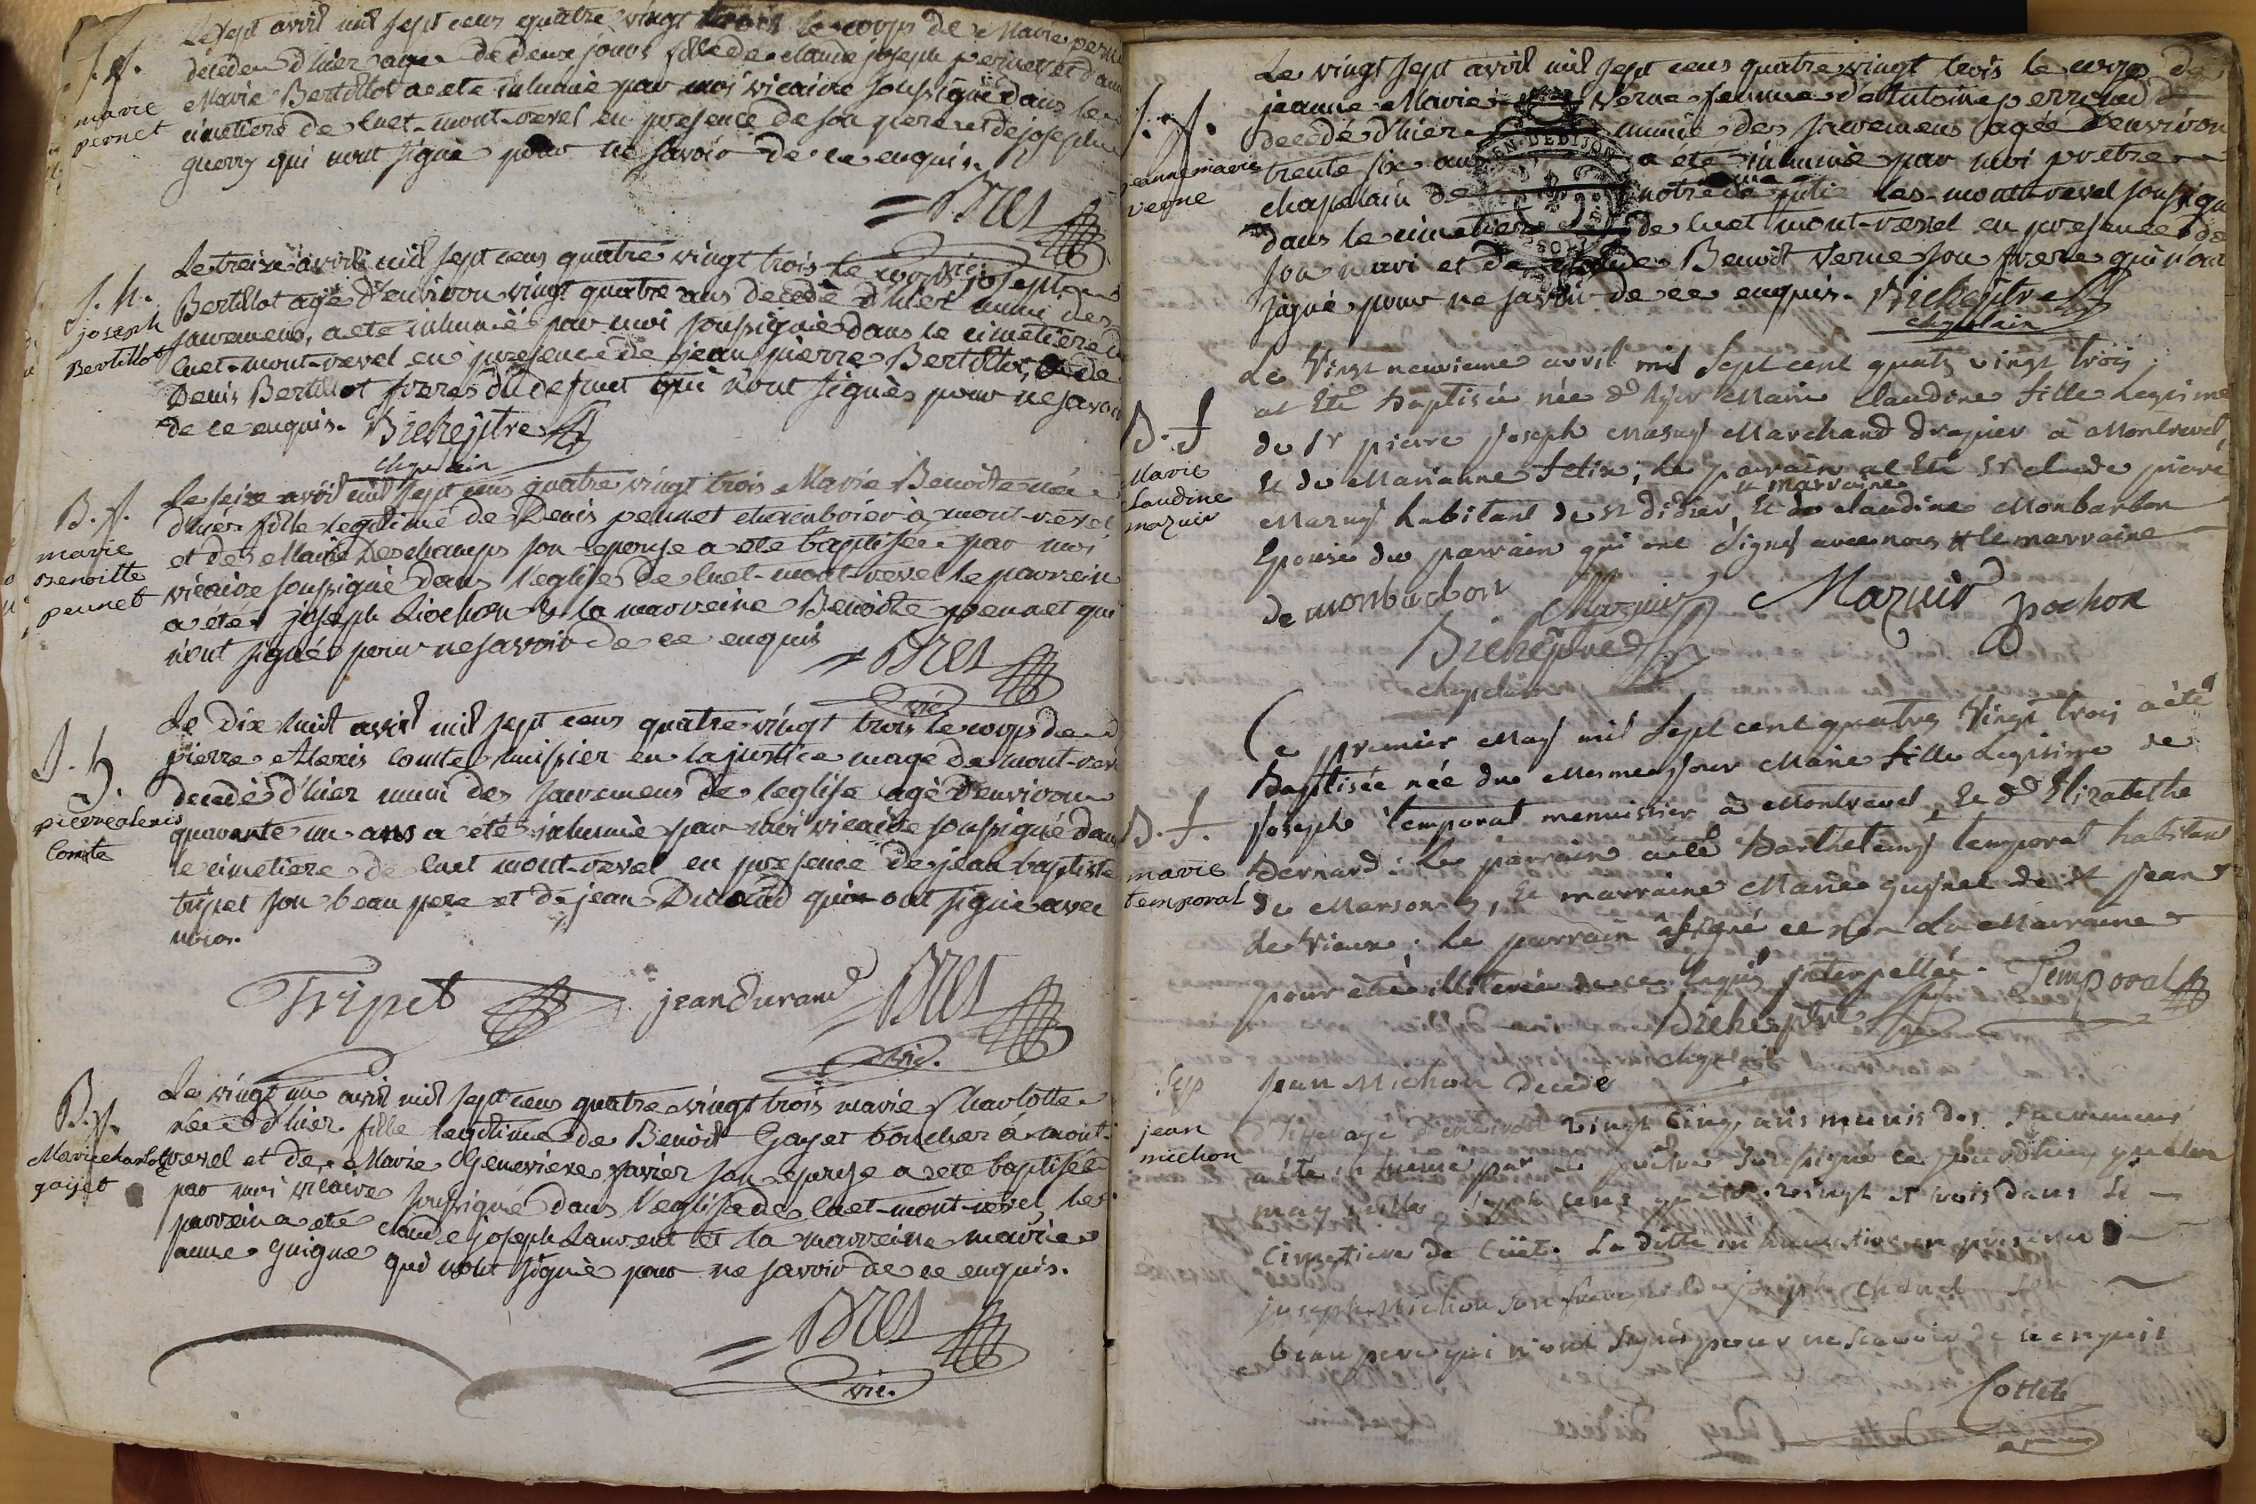 Le sept avril mil sept cens quatre vingt trois le corps de Marie pernet
S. f.
décédée d'hier agée de deux jours fille de claude joseph pernet et d'anne
marie
pernet
Marie Bertillot a ete inhumé par moi vicaire soussigné dans le
cimetiere de cuet-mont-revel en presence de son pere et de joseph
guerry qui n'ont signé pour ne savoir de ce enquis.
Bret
vic.
Le treize avril mil sept cens quatre vingt trois le corps de joseph
S. h.
joseph
Bertillot
Bertillot agé d'environ vingt quatre ans decedé d'hier muni des
sacremens, a ete inhumé par moi soussigné dans le cimetiere de
cuet-mont-revel en presence de jean pierre Bertillot, et de
Denis Bertillot freres du defunt qui n'ont signés pour ne savoir
de ce enquis. Bichet ptre
chapelain
Le seize avril mil sept cens quatre vingt trois Marie Benoite née
B. f.
marie
Benoitte
pennet
d'hier fille legitime de Denis pennet à mont-revel
et de Marie Deschamps son epouse a été baptisée par moi
vicaire soussigné dans l'eglise de cuet-mont-revel le parrein
a été joseph Liochon & la marreine Benoite pennet qui
n'ont signés pour ne savoir de ce enquis
Bret
vic.
Le dix huit avril mil sept cens quatre vingt trois le corps de
S. h.
pierre alexis
Comte
pierre Alexis Comte huissier en la justice mage de mont-revel
decedé d'hier muni des sacremens de l'eglise agé d'environ
quarante un ans a été inhumé par moi vicaire soussigné dans
le cimetiere de cuet mont-revel en presence de jean baptiste
tripet son beau pere et de jean Durand qui ont signé avec
nous.
Tripet jean durand Bret
vic.
Le vingt un avril mil sept cens quatre vingt trois marie Charlotte
B. f.
Marie charlotte
gayet
née d'hier fille legitime de Benoit Gayet boucher à mont-
revel et de Marie Genevieve Savier son epouse a été baptisée
par moi vicaire soussigné dans l'eglise de cuet-mont-revel, le
parrein a été claude joseph Laurent et la marreine marie
anne guigue qui n'ont signé pour ne savoir de ce enquis.
Bret
vic.
Le vingt sept avril mil sept cens quatre vingt trois le corps de
S. f.
jeanne marie
verne
jeanne Marie verne femme d'Antoine perraud
decedé d'hier munie des sacremens agée d'environ
trente six ans a été inhumé par moi prêtre
chapelain de notre dame de pitie les-mont-revel soussigné
dans le cimetiere de cuet mont-revel en presence de
son mari et de Benoit Verne son frere qui n'ont
signé pour ne savoir de ce enquis. Bichet ptre
chapelain
EN. DE DIJON
Le Vingt neuvieme avril mil sept cent quatre vingt trois
B. f
Marie
claudine
mazuir
at Eté baptisée née d'hyer Marie Claudine fille Legitime
de Sr pierre joseph Mazuy Marchand drapier à Montrevel,
Et de Marianne felix; le parrain at Eté Sr claude pierre
Mazuy habitant de St didier, Et la marraine claudine Monbarbon
Epouse du parrain qui ont signés avec nous & le marraine
de monbarbon Mazuir Mazuir pochon
Bichet ptre
chapelain
Ce premier May mil sept cent quatre Vingt trois a été
B. f.
marie
temporal
Baptisée née du mesme jour Marie fille Legitime de
joseph temporal menuissier à Montrevel, Et d'Elizabethe
Bernard: Le parrain a été Barthelemy temporal habitant
de Marsonas, Et marraine Marie de St jean
le Vieux: le parrain a signé et non la Marraine
pour être illiterée de ce requise interpellée. Temporal
Bichet ptre
chapelain
Sep
jean
michon
Jean Michon decedé
hier agé d'environ vingt cinq ans munis des sacremens
a été inhumé par moi prêtre soussigné ce jourd'huy quatre
may mille sept cens quatre-vingt et trois dans le
cimetiere de Cüet. La ditte inhumation en presence de
joseph Michon son frere et de joseph
beau pere qui n'ont signés pour ne scavoir de ce enquis
Cottet